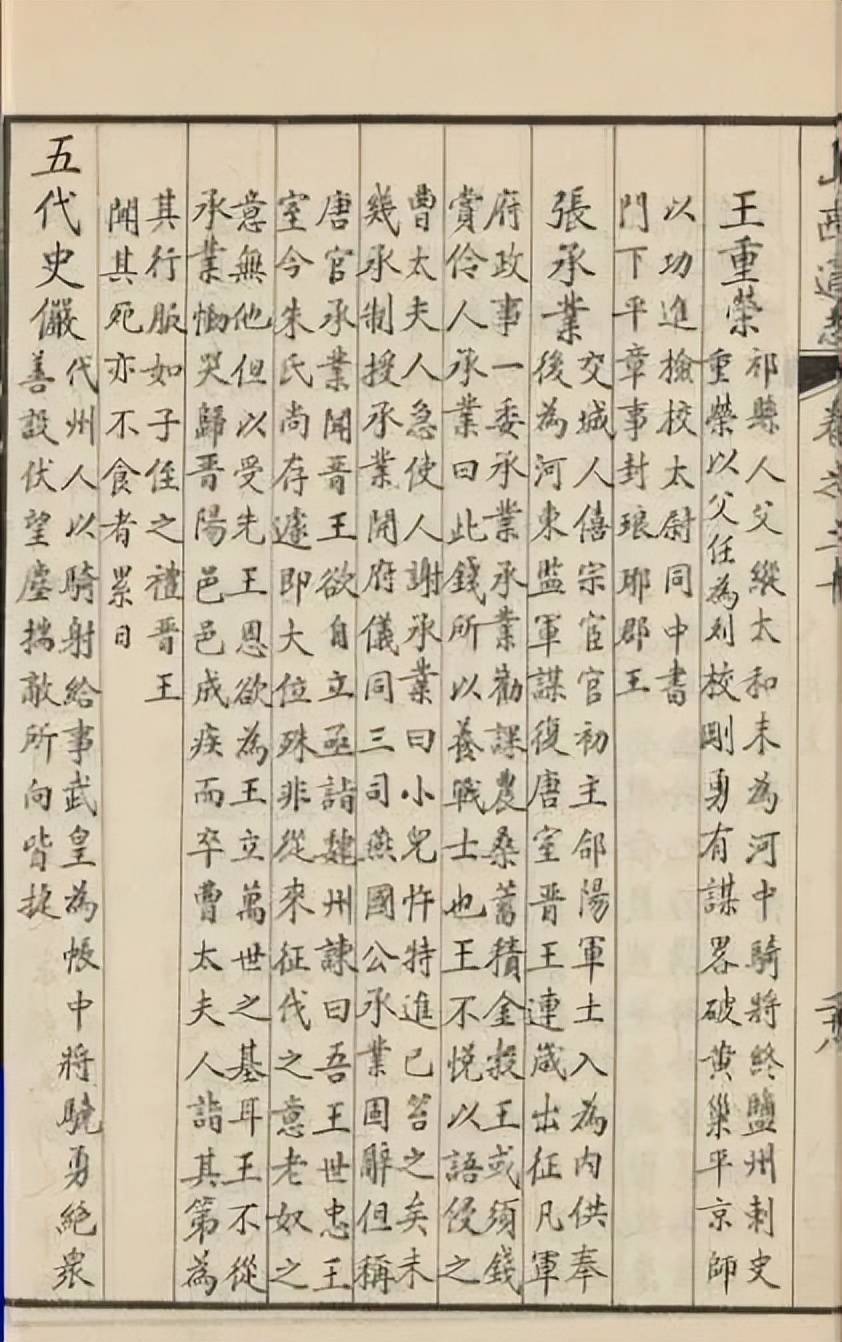 山西通志 卷之二十 十八
王重榮
祁縣人父縱太和末為河中騎將終鹽州刺史
重榮以父任為列校剛勇有謀畧破黄巢平京師
以功進撿校太尉同中書
門下平章事封琅耶郡王
張承業
交城人僖宗宦官初主郃陽軍士入為内供奉
後為河東監軍謀復唐室晋王連歲出征凡軍
府政事一委承業承業勸課農桑蓄積金榖王或須錢
賞伶人承業曰此錢所以養戰士也王不悅以語侵之
曹太夫人急使人謝承業曰小兒忤特進已笞之矣未
幾承制授承業開府儀同三司燕國公承業固辭但稱
唐官承業聞晋王欲自立亟詣魏州諫曰吾王世忠王
室今朱氏尚存遽即大位殊非從來征伐之意老奴之
意無他但以受先王恩欲為王立萬世之基耳王不從
承業慟哭歸晋陽邑邑成疾而卒曹太夫人詣其第為
其行服如子侄之禮晋王
聞其死亦不食者累日
五代史儼
代州人以騎射給事武皇為帳中將驍勇絶衆
善設伏望塵揣敵所向皆捷